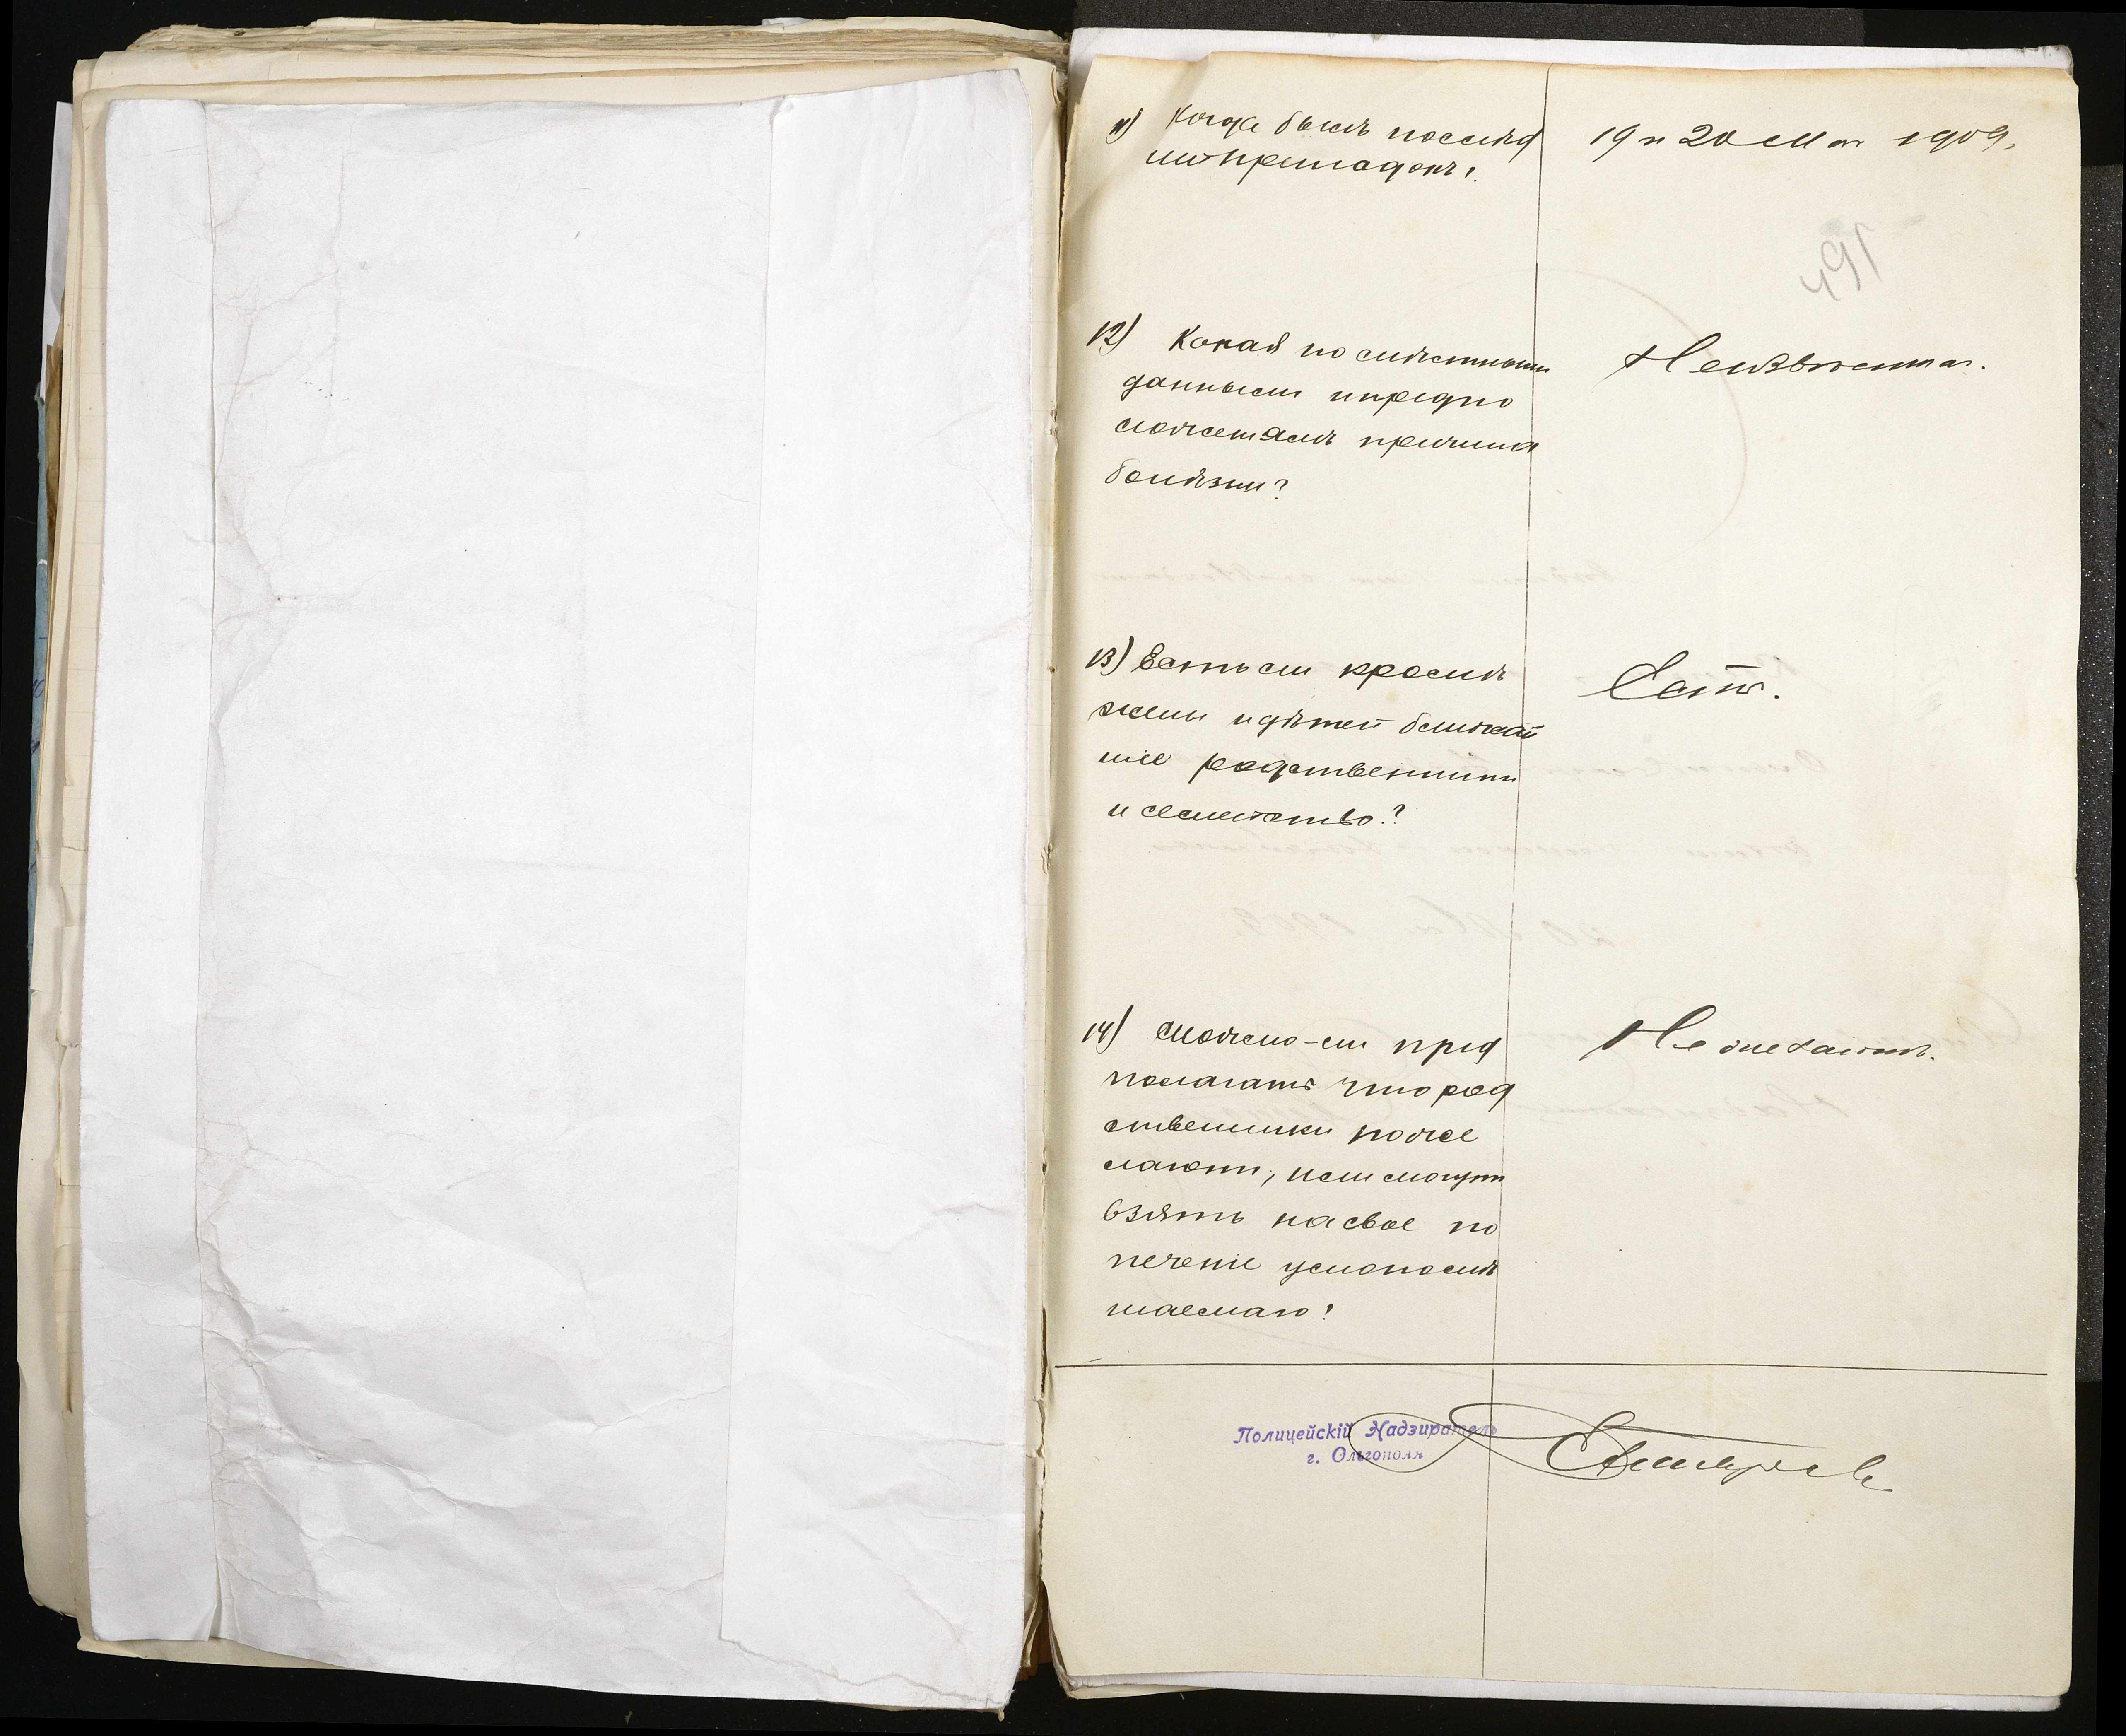 11) Когда былъ послѣд
ній припадокъ?
19 и 20 Мая 1909,
12) Какая по мѣстнымъ
даннымъ и предпо
ложеніямъ причина
болѣзни?
Неизвѣстна.
13) Есть ли кромѣ
жены и дѣтей ближай
шіе родственники
и семейство?
Есть.
14) Можно-ли пред
полагать что род
ственники поже
лаютъ, или могутъ
взять на свое по
печеніе умопомѣ
шаемаго?
Не желаютъ.
Полицейскій Надзиратель
г. Ольгополя